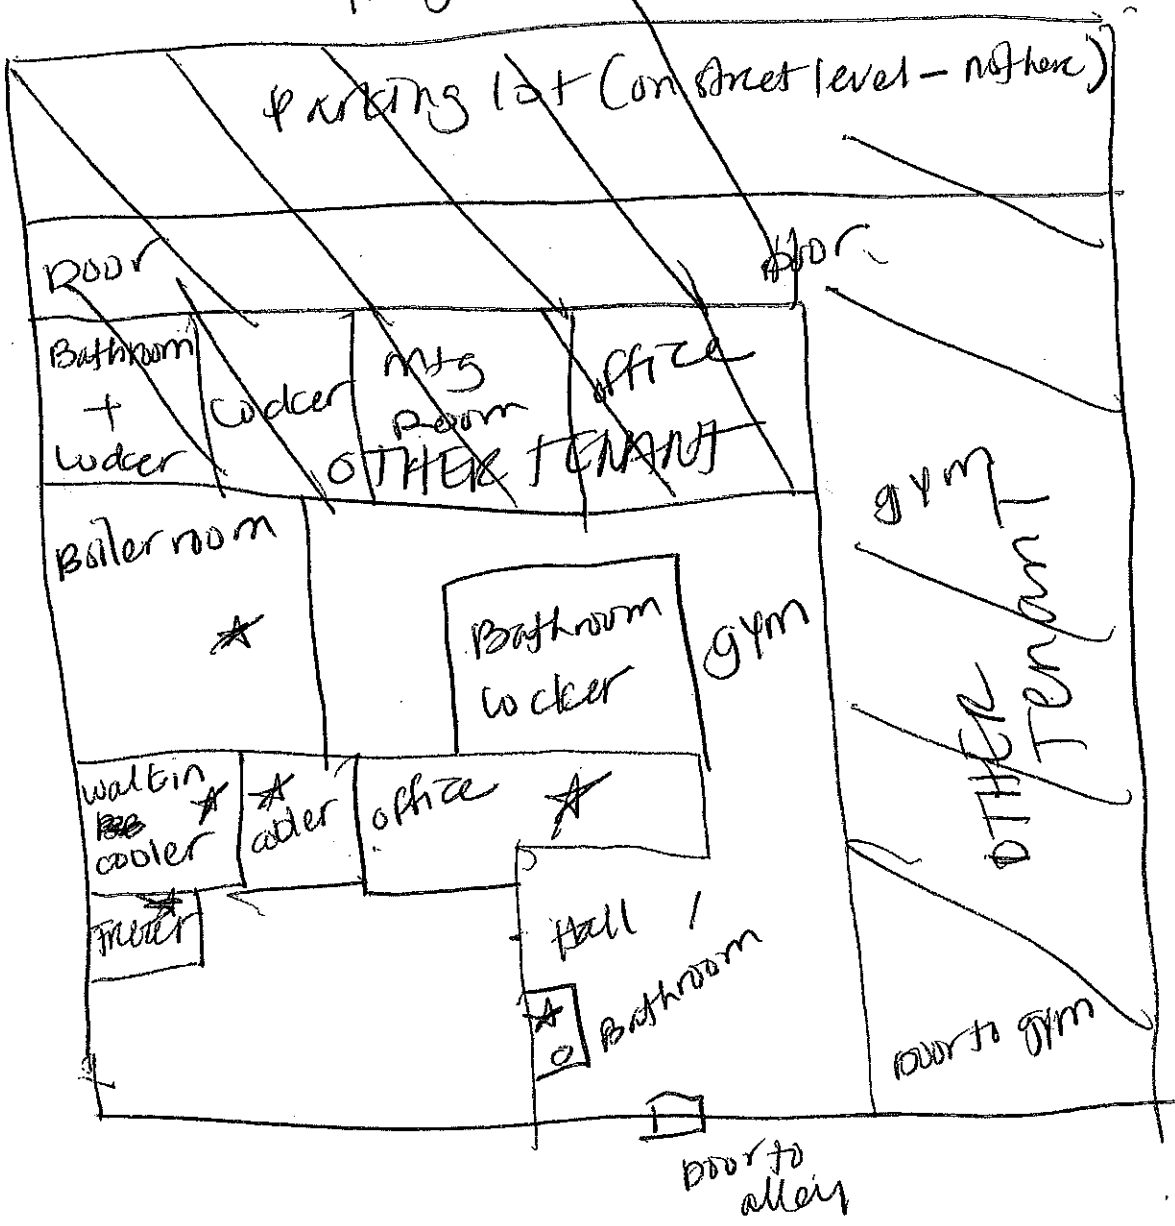 parking lot (on street level - not here)
Door
door
Bathroom
+
Locker
Locker
Mtg
Room
office
OTHER TENANT
Boiler room
Bathroom
Locker
gym
gym
OTHER
Tenant
walkin
cooler
cooler
office
Freezer
Hall
Bathroom
Door to gym
Door to
alley